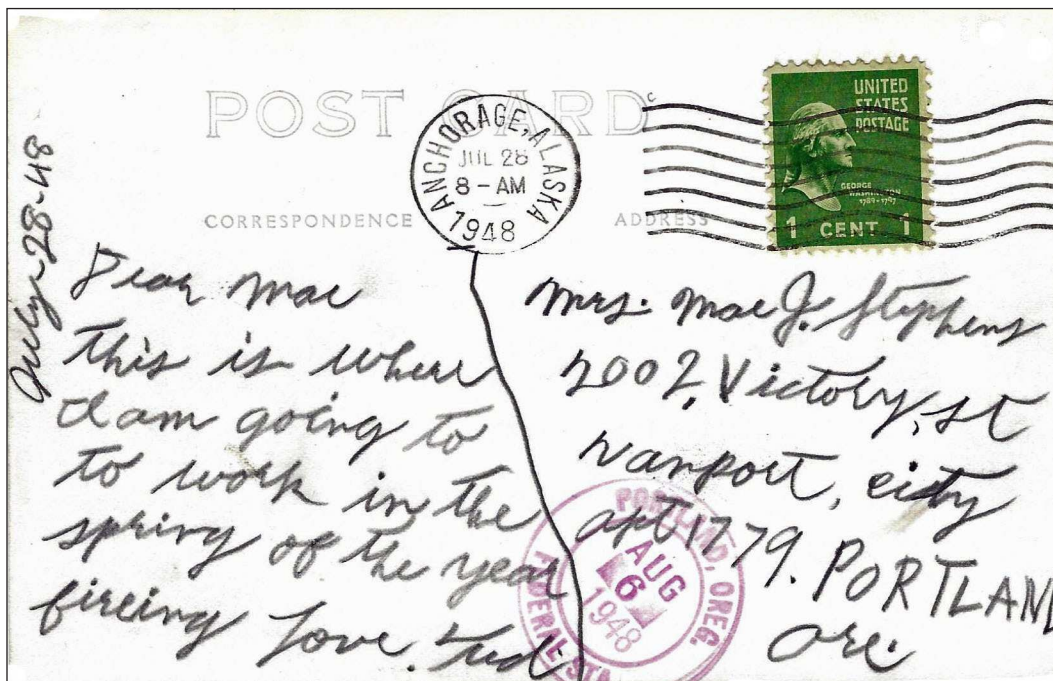 POST CARD
ANCHORAGE, ALASKA
JUL 28
8-AM
1948
UNITED
STATES
POSTAGE
GEORGE
WASHINGTON
1789-1797
1 CENT 1
CORRESPONDENCE
ADDRESS
July-28-48
Dear Mae
This is where
I am going to
to work in the
spring of the year
fireing Love.
Mrs. Mae J. Stephens
2002, Victory, st
vanport, city
apt 1779. PORTLAND
ore.
PORTLAND, OREG.
AUG
6
1948